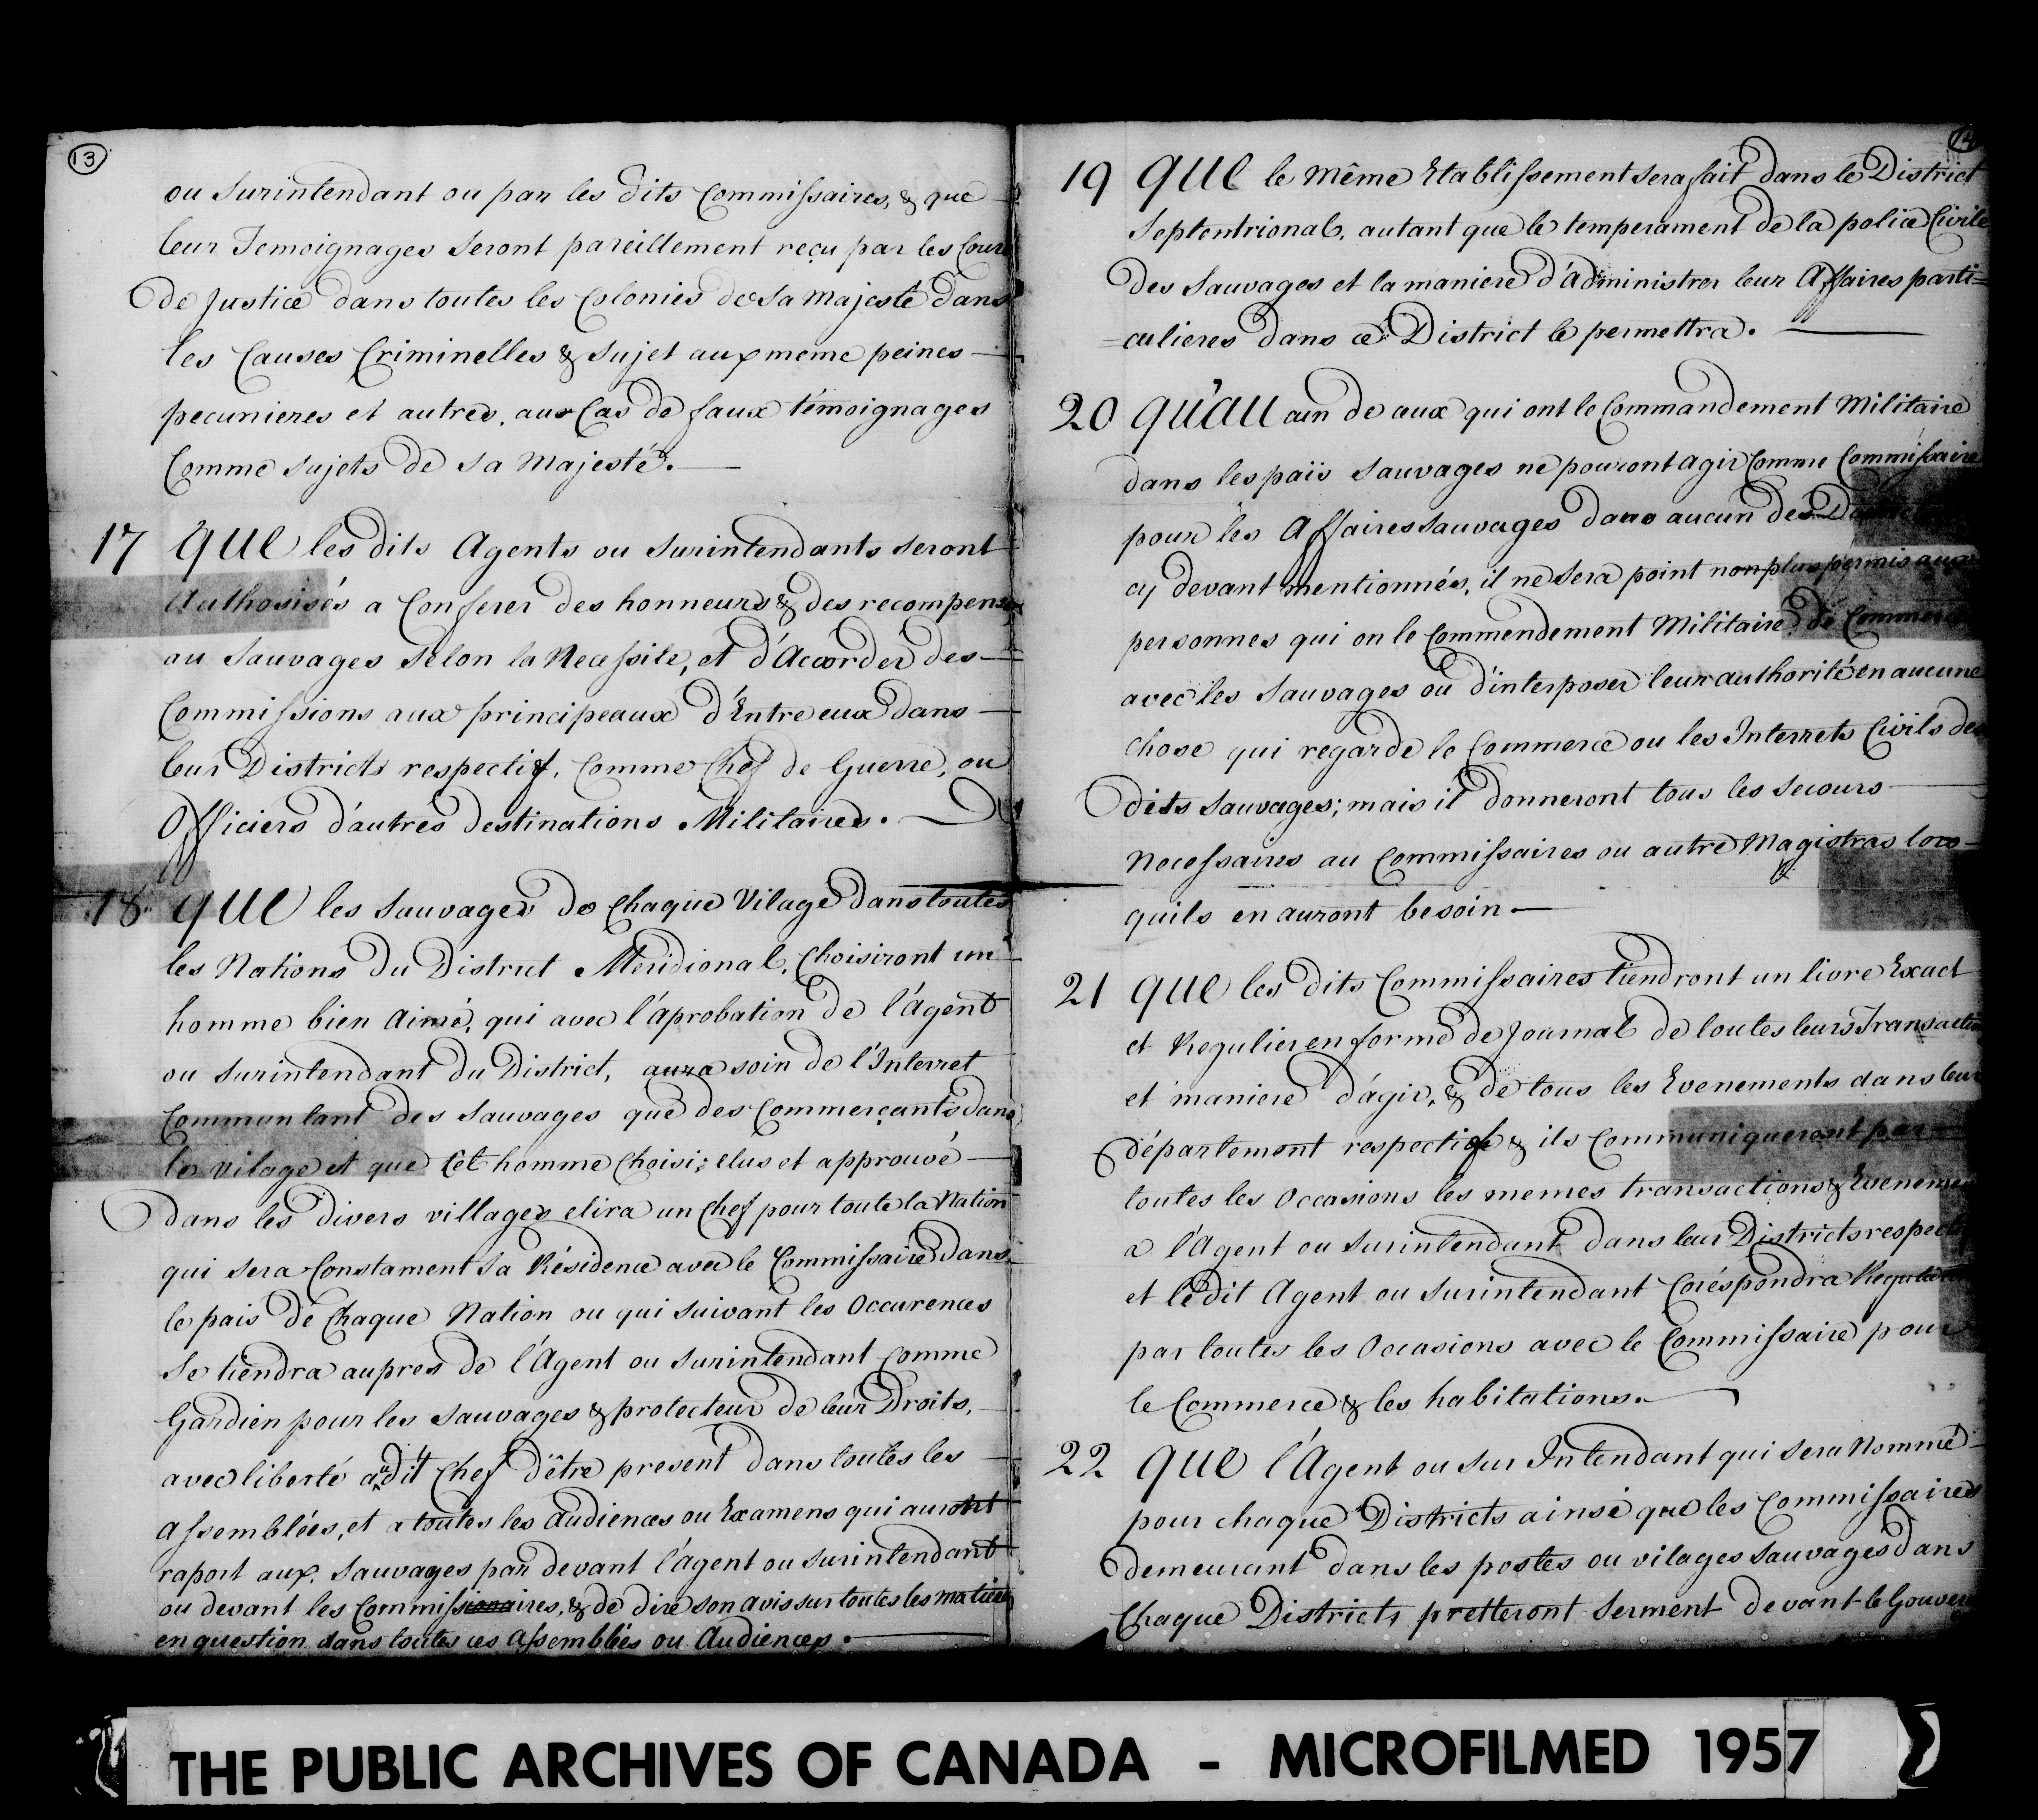 13
ou Surintendant ou par les dits Commissaires, & que
leur Temoignages Seront pareillement reçu par les Cours
de Justice dans toutes les Colonies de Sa Majesté dans
les Causes Criminelles & Sujet aux meme peines
pecunieres et autres, aux Cas de faux témoignages
Comme Sujets de Sa Majesté.
17 Que les dits Agents ou Surintendants seront
Authorisés a Conferer des honneurs & des recompenses
au Sauvages Selon la Necessite, et d'Accorder des
Commissions aux principeaux d'Entre eux dans
leur Districts respectif, Comme Chef de Guerre, ou
Officiers d'autres destinations Militaires.
18 Que les Sauvages de Chaque Vilage dans toutes
les Nations Du District Meridional, Choisiront un
homme bien Aimé, qui avec l'áprobation de l'Agent
ou Surintendant Du District, aura soin de l'Interret
Commun tant des Sauvages que des Commerçants dans
le vilage et que Cet homme Choisi; elus et approuvé
Dans les divers villages elira un Chef pour toute la Nation
qui sera Constament Sa Résidence avec le Commissaire Dans
le pais de Chaque Nation ou qui suivant les Occurences
Se tiendra aupres de l'Agent ou Surintendant Comme
Gardien pour les Sauvages & protecteur de leur Droits,
avec liberté audit Chef d'être present dans toutes les
Assemblées, et a toutes les Audiences ou Examens qui auront
raport aux Sauvages par devant l'ágent ou Surintendant
ou devant les Commissaires, & de dire son avis sur toutes les matieres
en question dans toutes ces Assemblées ou Audiences.
14
19 Que le Même Etablissement sera fait dans le District
Septentrional, autant que le temperament de la police Civile
Des Sauvages et la maniere d'Administrer leur Affaires parti=
=culieres dans ce District le permettra.
20 Qu'au cun de ceux qui ont le Commandement Militaire
dans les païs Sauvages ne pouront agir Comme Commissaire
pour les Affaires Sauvages dans aucun des Districts
cy devant mentionnés, il ne sera point non plus permis aux
personnes qui on le Commendement Militaire de Commercer
avec les Sauvages ou d'interposer leur authorité en aucune
chose qui regarde le Commerce ou les Interrets Civils des
dits Sauvages; mais il donneront tous les secours
Necessaires au Commissaires ou autre Magistras lors
quils en auront besoin.
21 Que les dits Commissaires tiendront un livre Exact
et Regulier en forme de Journal de toutes leurs Transactions
et maniere d'ágir, & de tous les Evenements dans leur
département respectif & ils Communiqueront par
toutes les Occasions les memes transactions & Evenements
a l'Agent ou Surintendant dans leur Districts respectifs
et le dit Agent ou Surintendant Coréspondra
par toutes les Occasions avec le Commissaire pour
le Commerce & les habitations.
22 Que l'Agent ou Sur Intendant qui sera Nommé
pour chaque Districts ainsi que les Commissaires
demeurant dans les postes ou vilages Sauvages dans
Chaque Districts pretteront Serment devant le Gouver
THE PUBLIC ARCHIVES OF CANADA - MICROFILMED 1957